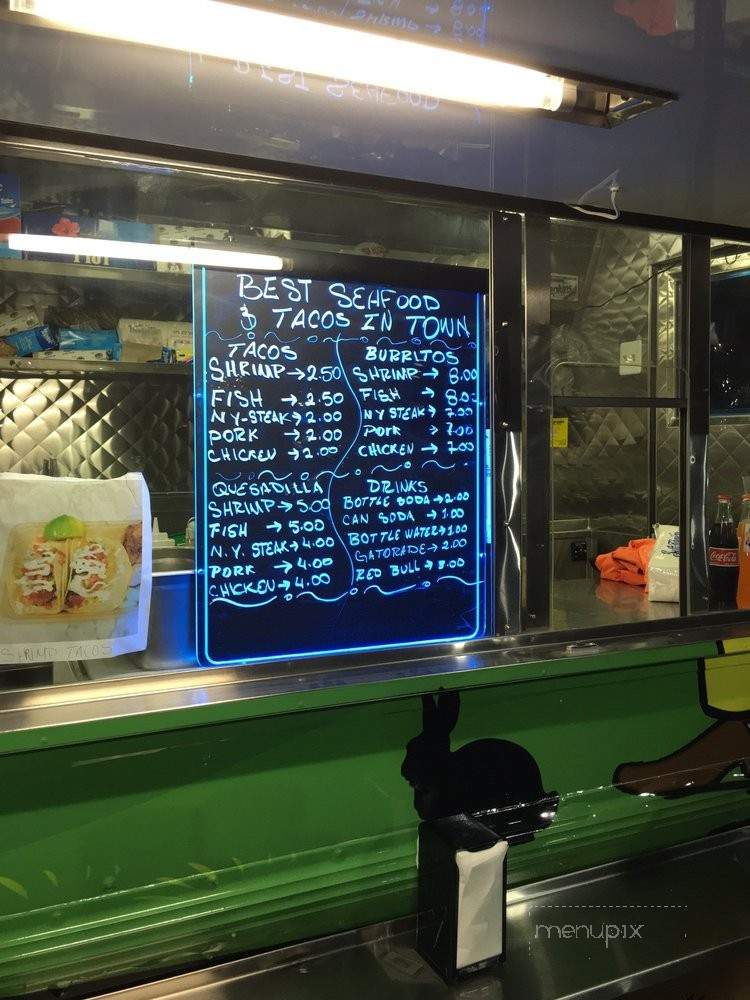 BEST SEAFOOD
$ TACOS IN TOWN
TACOS
SHRIMP → 2.50
FISH → 2.50
NY-STEAK → 2.00
PORK → 2.00
CHICKEN → 2.00
BURRITOS
SHRIMP → 8.00
FISH → 8.00
NY STEAK → 7.00
PORK → 7.00
CHICKEN → 7.00
QUESADILLA
SHRIMP → 5.00
FISH → 5.00
N.Y. STEAK → 4.00
PORK → 4.00
CHICKEN → 4.00
DRINKS
BOTTLE SODA → 2.00
CAN SODA → 1.00
BOTTLE WATER → 1.00
GATORADE → 2.00
RED BULL → 3.00
SHRIMP TACOS
Coca-Cola
menupix